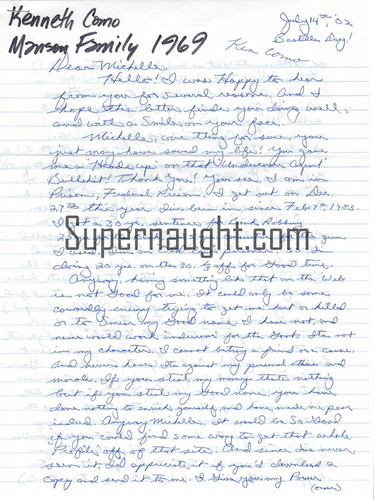 Kenneth Como
Manson Family 1969
July 14th, '02
Bastille Day!
Ken Como
Dear Michelle,
Hello! I was Happy to hear
from you for several reasons. And I
hope this letter finds you doing well,
and with a Smile on your face.
Michelle, one thing for sure, you
just may have saved my life! You gave
me a "Heads up" on that "Undercover Agent"
Bullshit! Thank You! You see, I am in
Prison, Federal Prison. I get out on Dec.
27th this year. I've been in since Feb. 7th, 1983.
a 30 yr. sentence for Bank Robbing
Supernaught.com
doing 20 yrs. on the 30. 1/3 off for Good time.
Anyway having something like that on the Web
is not Good for me. It could only be some
cowardly enemy trying to get me hurt or killed,
or to Smear my Good name. I have not, and
never would work undercover for the Govt. Its not
in my character. I cannot betray a friend or a cause.
And never have. Its against my personal ethics and
morals. If you steal my money thats nothing
but if you steal my Good name, you have
done nothing to enrich yourself, and have made me poor
indeed. Anyway Michelle, It would be So Good
if you could find some way to get that whole
Profile off of that site. And since Ive never
seen it, Id appreciate it if you'd download a
Copy and send it to me. I Give you my Power
(over)